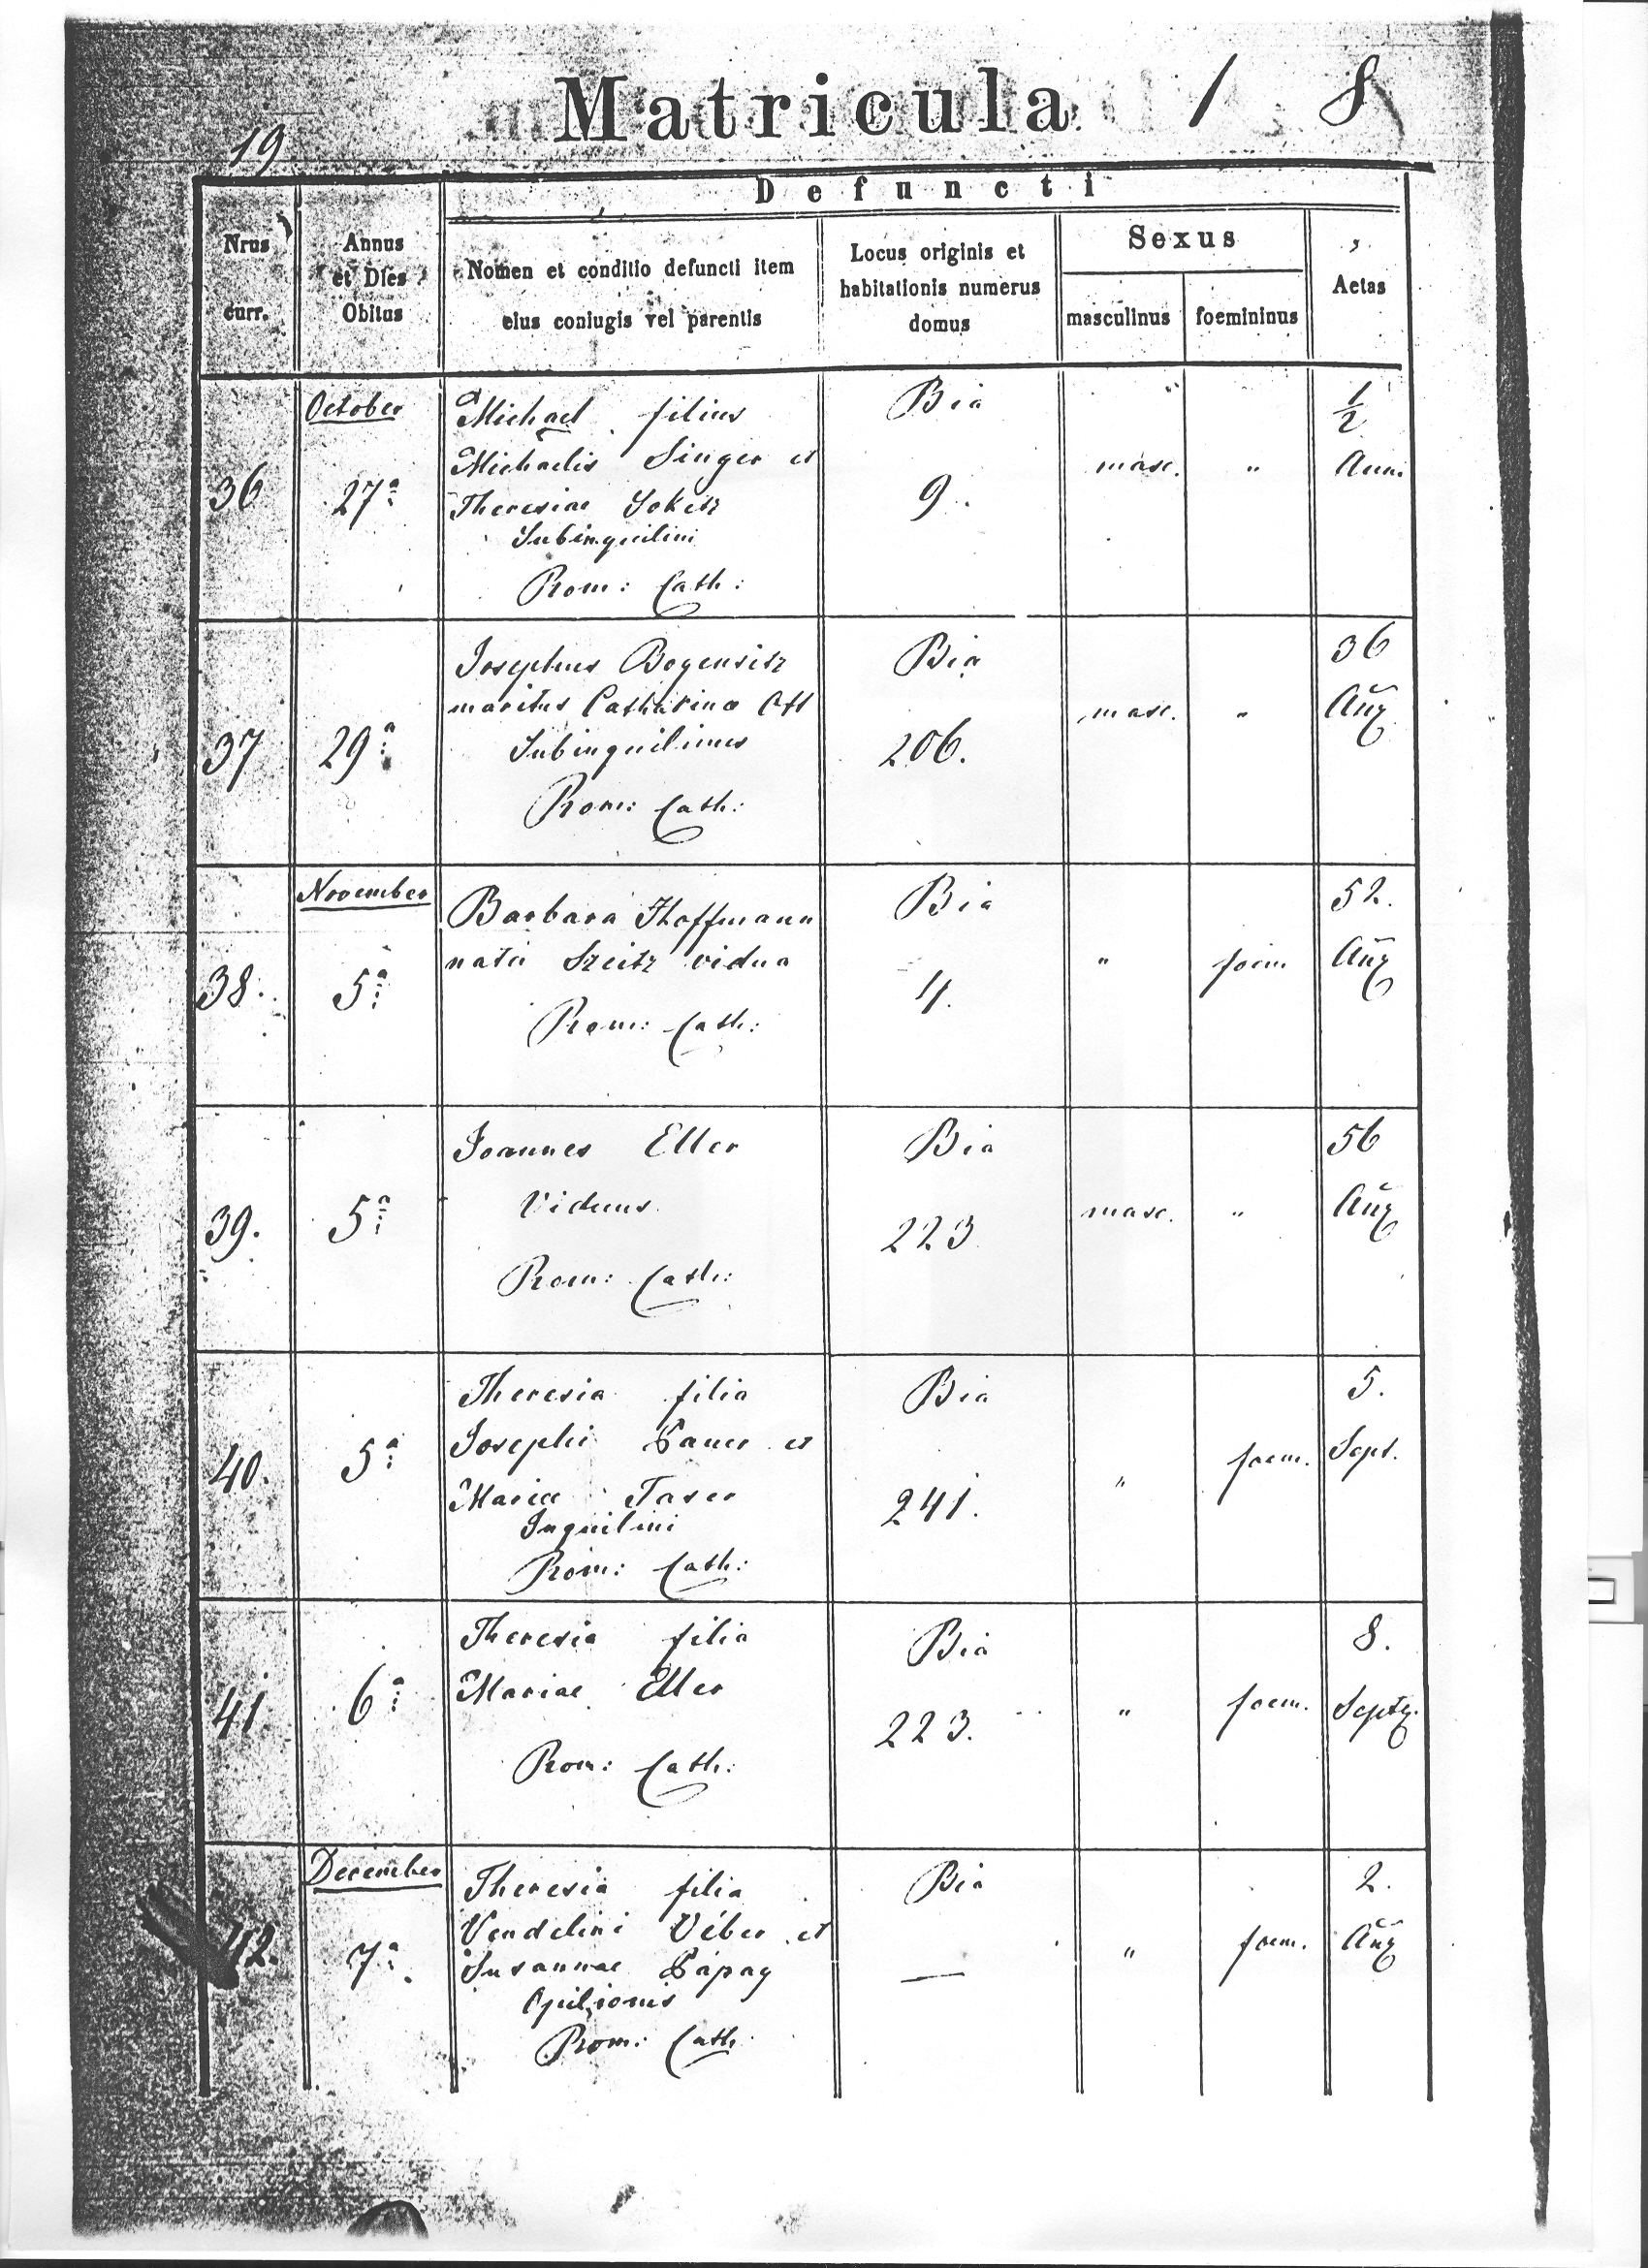 Matricula 1 8
19
Defuncti
Nrus
curr.
Annus
et Dies
Obitus
Nomen et conditio defuncti item
eius coniugis vel parentis
Locus originis et
habitationis numerus
domus
Sexus
masculinus
foemininus
Aetas
October
36
27a
Michael filius
Michaelis Singer et
Theresiae
Subinquilini
Rom: Cath:
Bia
9.
masc.
"
1/2
Anni
37
29a
Josephus Bogensitz
maritus Catharinae Ott
Subinquilinus
Rom: Cath:
Bia
206.
masc.
"
36
Añ
November
38.
5a
Barbara Hoffmann
nata Szeitz vidua
Rom: Cath:
Bia
4.
"
foem
52.
Añ
39.
5a
Joannes Eller
Viduus.
Rom: Cath:
Bia
223
masc.
"
56
Añ
40.
5a
Theresia filia
Josephi Pauer et
Mariae Taser
Inquilini
Rom: Cath:
Bia
241.
"
foem.
5.
Sept.
41
6a
Theresia filia
Mariae Eller
Rom: Cath:
Bia
223.
"
foem.
8.
Septi.
December
42.
7a.
Theresia filia
Vendelini Véber et
Susannae Pápay
Opilionis
Rom: Cath:
Bia
—
"
foem.
2.
Añ